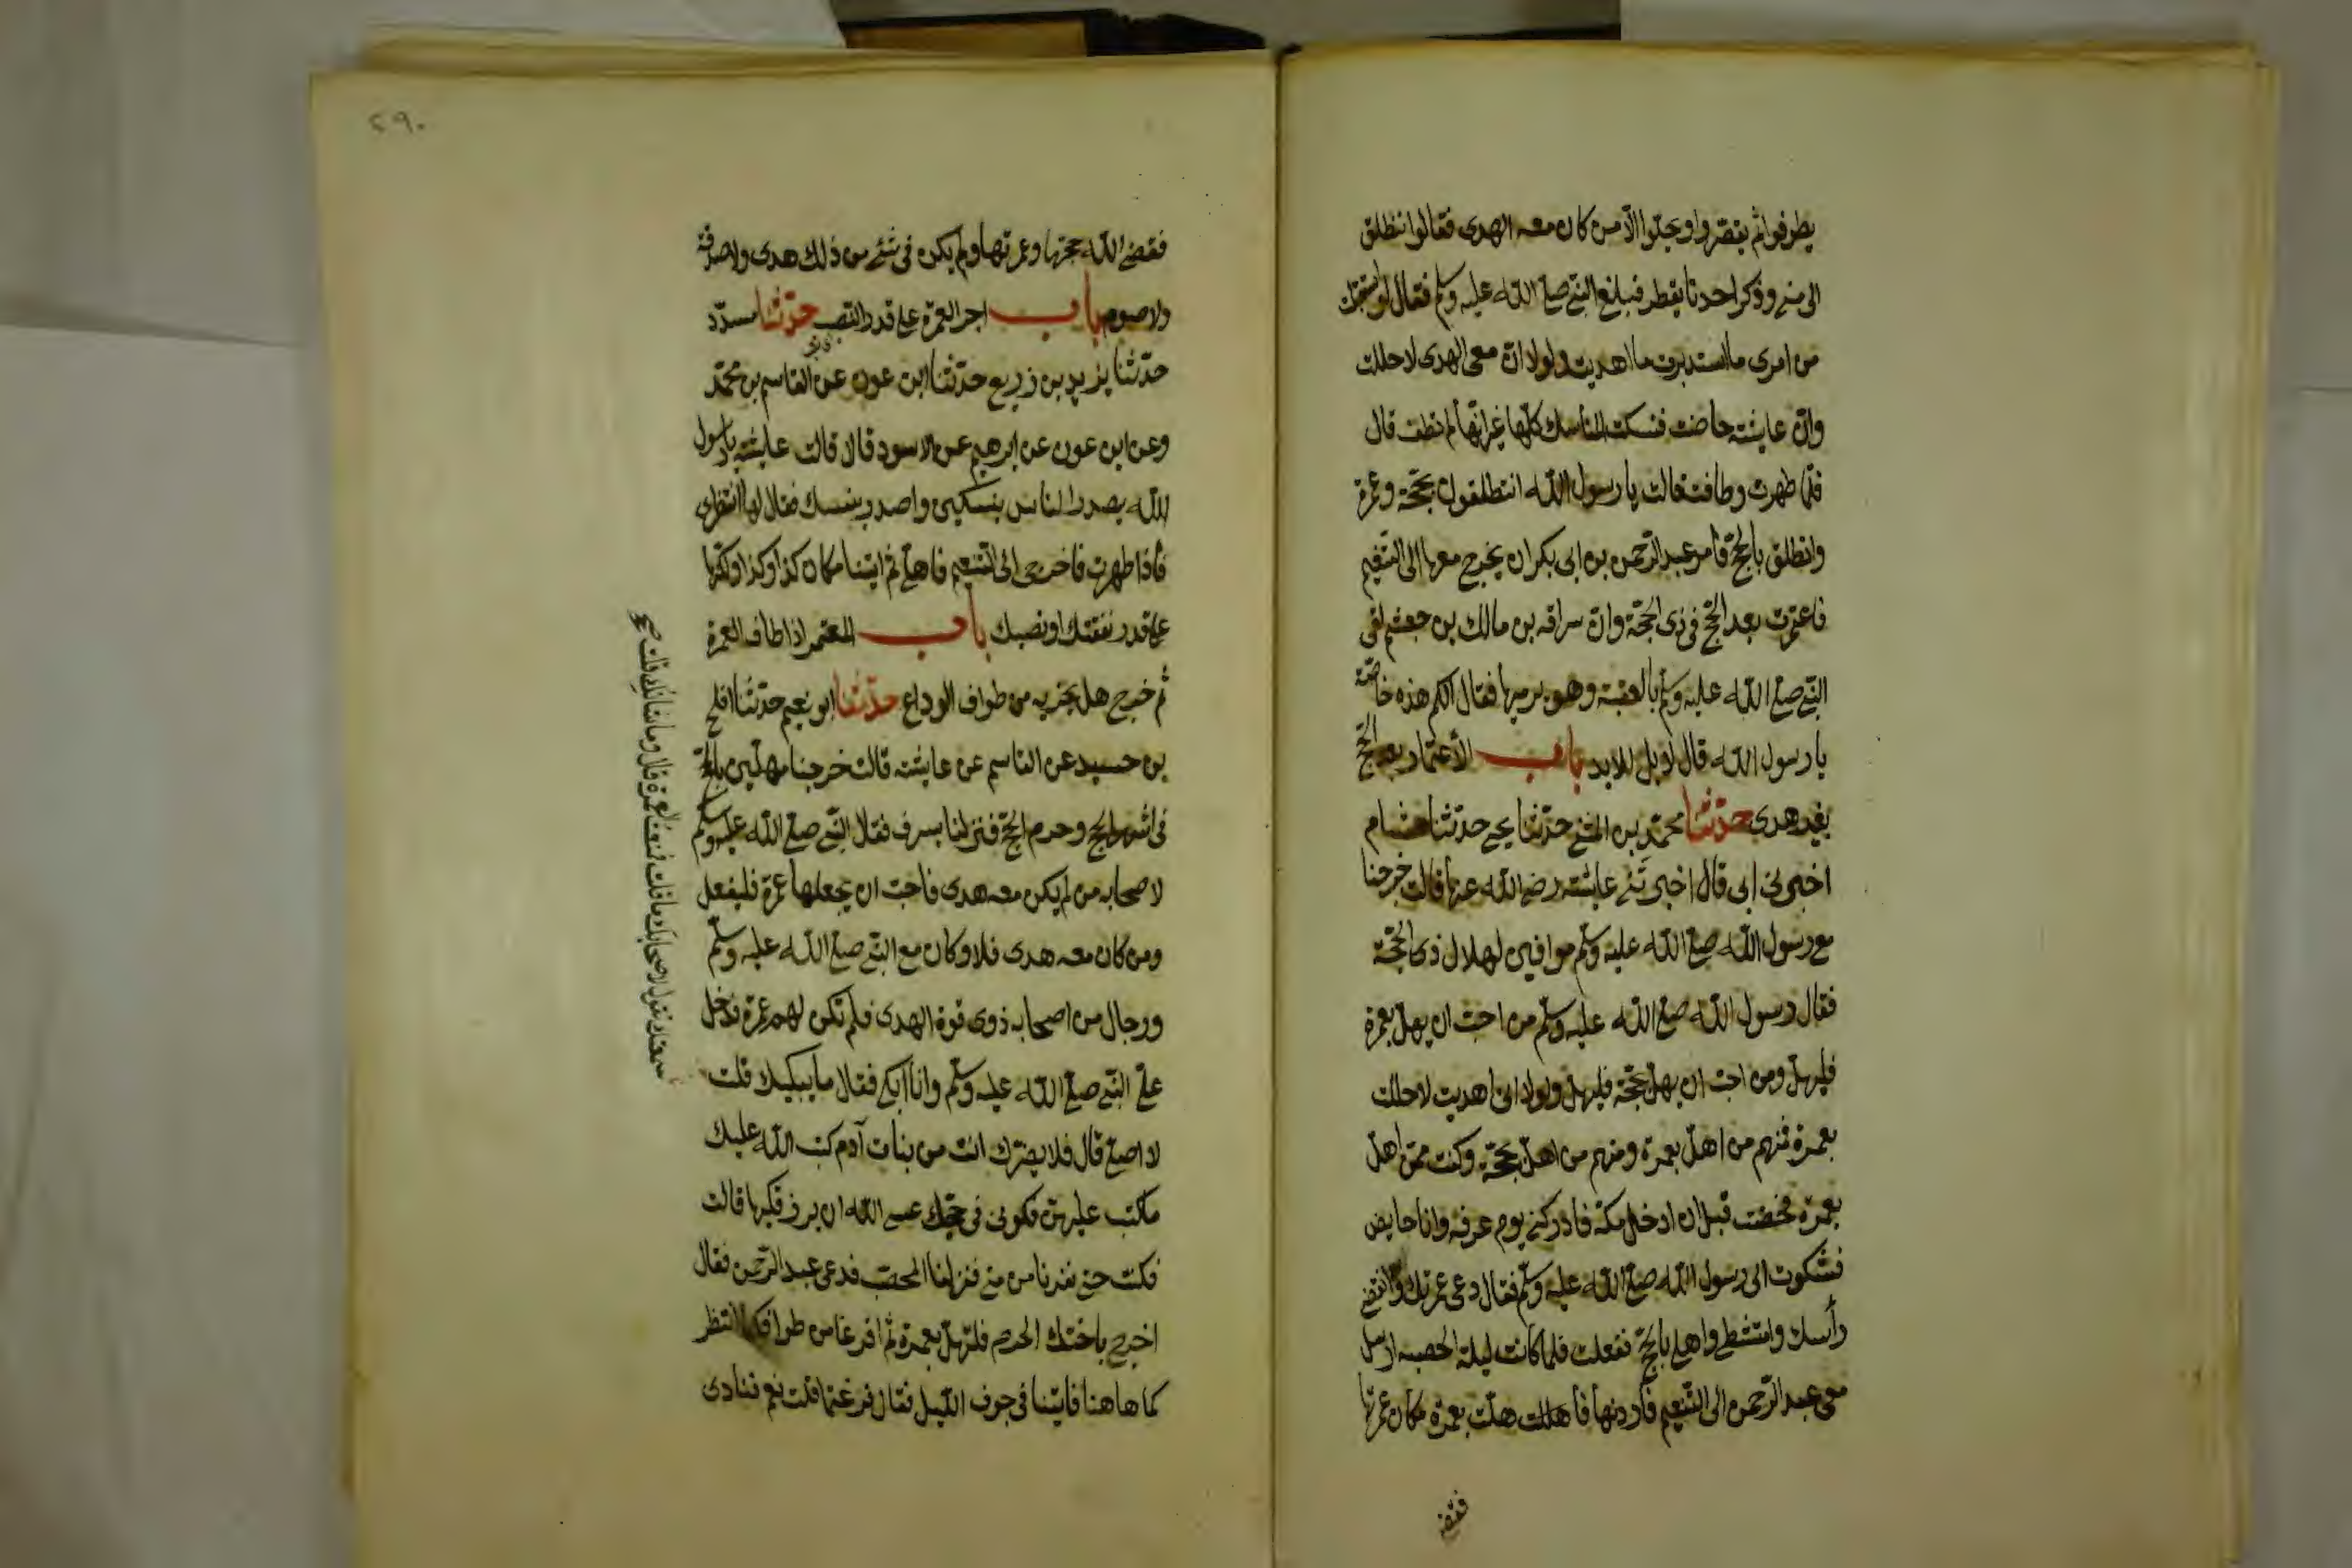 يطوفوا ثم يقصروا ويحلوا الا من كان معه الهدى فقالوا ننطلق
الى منى وذكر احدنا يقطر فبلغ النبى صلى الله عليه وسلم فقال لو استقبلت
من امرى ما استدبرت ما اهديت ولولا ان معى الهدى لاحللت
وان عايشة حاضت فنسكت المناسك كلها غير انها لم تطف قال
فلما طهرت وطافت قالت يا رسول الله انتطلقون بحجة وعمرة
وانطلق بالحج فامر عبد الرحمن بن ابى بكر ان يخرج معها الى التنعيم
فاعتمرت بعد الحج فى ذى الحجة وان سراقه بن مالك بن جعشم لقى
النبى صلى الله عليه وسلم بالعقبة وهو يرميها فقال الكم هذه خاصة
يا رسول الله قال لا بل للابد باب الاعتمار بعد الحج
بغير هدى حدثنا محمد بن المثنى حدثنا يحيى حدثنا هشام
اخبرنى ابى قال اخبرتنى عايشة رضى الله عنها قالت خرجنا
مع رسول الله صلى الله عليه وسلم موافين لهلال ذى الحجة
فقال رسول الله صلى الله عليه وسلم من احب ان يهل بعمرة
فليهل ومن احب ان يهل بحجة فليهل ولولا انى اهديت لاحللت
بعمرة فمنهم من اهل بعمرة ومنهم من اهل بحجة وكنت ممن اهل
بعمرة فحضت قبل ان ادخل مكة فادركنى يوم عرفه وانا حايض
فشكوت الى رسول الله صلى الله عليه وسلم فقال دعى عمرتك وانقضى
رأسك وامتشطى واهلى بالحج ففعلت فلما كانت ليلة الحصبه ارسل
معى عبد الرحمن الى التنعيم فأردفها فأهللت هلت بعمرة مكان عمرتها
فقضى
٢٩٠
فقضى الله حجتها وعمرتها ولم يكن فى شئ من ذلك هدى ولا صدقة
ولا صوم باب اجر العمرة على قدر النصب حدثنا مسدد
حدثنا يزيد بن زريع حدثنا ابن عون عن القاسم بن محمد
وعن ابن عون عن ابرهيم عن الاسود قال قالت عايشة يا رسول
الله يصدر الناس بنسكين واصدر بنسك فقال لها انتظرى
فأذا طهرت فاخرجى الى التنعيم فاهلى ثم ايتنا مكان كذا وكذا ولكنها
على قدر نفقتك او نصبك باب المعتمر اذا طاف العمرة
ثم خرج هل يجزيه من طواف الوداع حدثنا ابو نعيم حدثنا افلح
بن حميد عن القاسم عن عايشة قالت خرجنا مهلين بالحج
فى اشهر الحج وحرم الحج فنزلنا بسرف فقال النبى صلى الله عليه وسلم
لاصحابه من لم يكن معه هدى فاحب ان يجعلها عمرة فليفعل
ومن كان معه هدى فلا وكان مع النبى صلى الله عليه وسلم
ورجال من اصحابه ذوى قوة الهدى فلم تكن لهم عمرة فدخل
على النبى صلى الله عليه وسلم وانا ابكى فقال ما يبكيك قلت
لا اصلى قال فلا يضرك انت من بنات آدم كتب الله عليك
ما كتب عليهن فكونى فى حجتك عسى الله ان يرزقكيها قالت
فكنت حتى نفرنا من منى فنزلنا المحصب فدعى عبد الرحمن فقال
اخرج باختك الحرم فلتهل بعمرة ثم افرغا من طوافكما انتظر
كما هاهنا فاتينا فى جوف الليل فقال فرغتما قلت نعم فنادى
سمعتك تقول لاصحابك ما قلت فمنعت العمرة قال وما شانك قلت صح